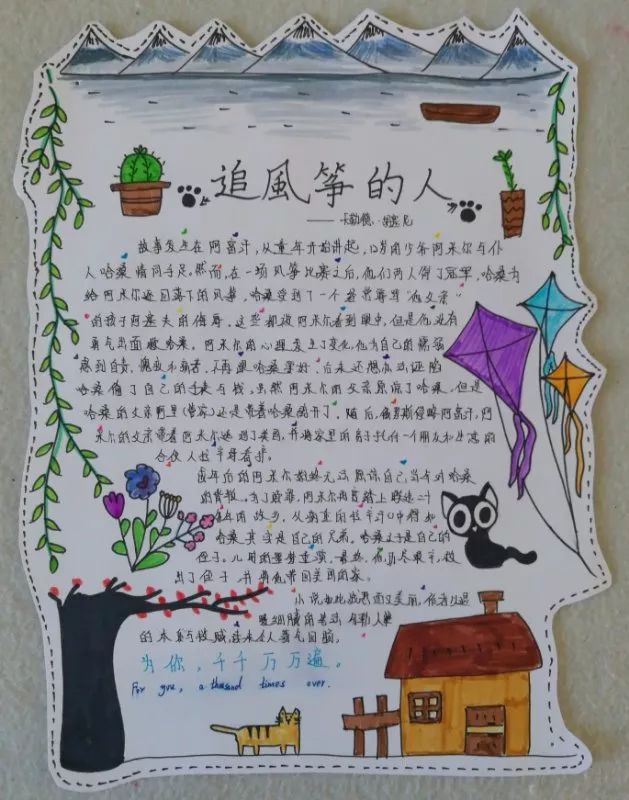 追風筝的人
——卡勒德·胡赛尼
故事发生在阿富汗，从童年开始讲起，12岁的少年阿米尔与仆
人哈桑情同手足。然而，在一场风筝比赛之后，他们两人得了冠军，哈桑为
给阿米尔追回落下的风筝，哈桑受到了一个
的孩子阿塞夫的侮辱，这些都被阿米尔看到眼中，但是他没有
勇气出面救哈桑。阿米尔的心理发生了变化，他为自己的懦弱
感到自责，不再跟哈桑要好，后来还想办法诬陷
哈桑偷了自己的手表与钱，虽然阿米尔的父亲原谅了哈桑，但是
哈桑的父亲阿里(管家)还是带着哈桑离开了。随后，俄罗斯侵略阿富汗，阿
米尔的父亲带着阿米尔逃到了美国，并将家里的房子托付一个朋友和生意的
合伙人拉辛汗看护。
成年后的阿米尔始终无法原谅自己当年对哈桑
的背叛。为了赎罪，阿米尔再度踏上暌违二十
多年的故乡，从病重的拉辛汗口中得知
哈桑其实是自己的兄弟。哈桑之子是自己的
侄子。儿时的噩梦重演，最终，他历尽艰辛，救
出了侄子，并带他带回美国的家。
小说如此残忍而又美丽，作者以温
暖细腻的笔法勾勒人性
的本质与救赎，读来令人荡气回肠。
为你，千千万万遍。
For you, a thousand times over.